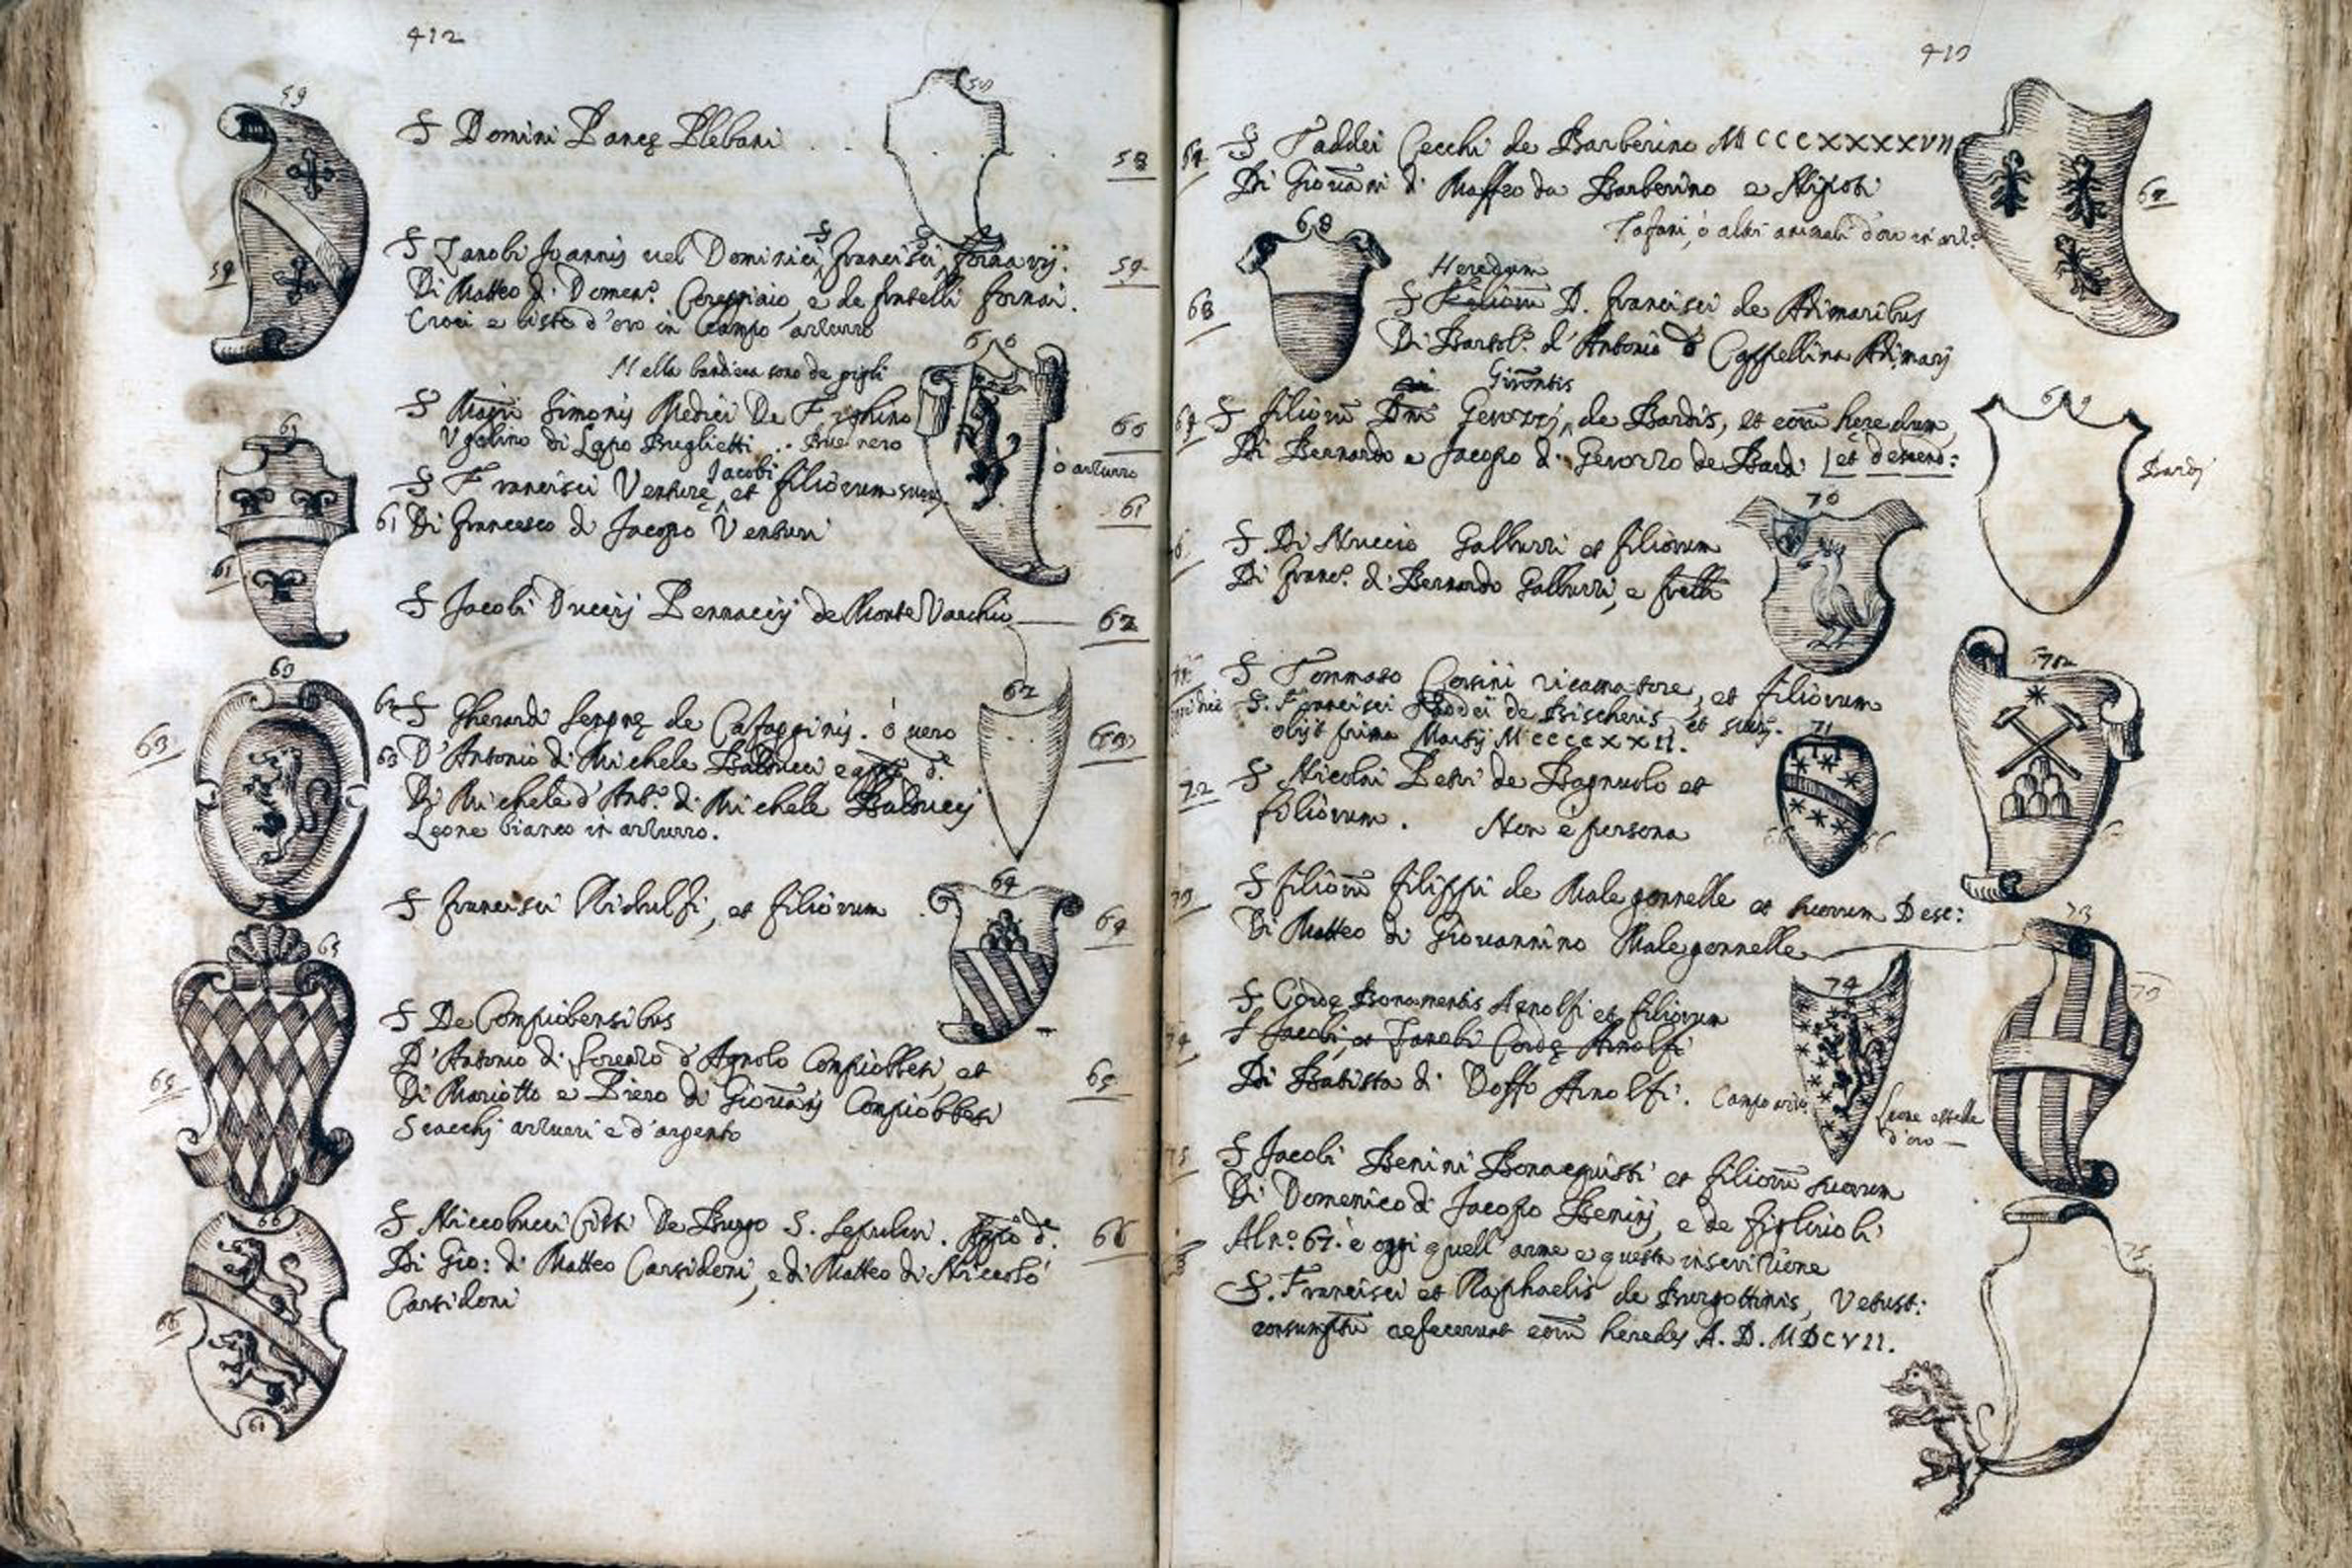 412
58
S Domini Pancę Plebani
58
59
S Zanobi Joannis vel Dominici, Francisci,
59
Di Matteo di Domen.º e de fratelli fornai.
Croci e lista d'oro in Campo azzurro
59
Nella bandiera sono de gigli
60
S Magri Simonis Medici De
60
Ugolino di Lapo Buglietti .. Bue nero
ò azzurro
S Francisci Venturę Jacobi et filiorum suor
61
61 Di Francesco di Jacopo Venturi
61
61
S Jacobi Duccij Pennaccij de Monte Varchio
62
62
63
S Gherardi de . ò vero
63
63
63 D'Antonio di Michele Balducci
Di Michele d'Ant.º di Michele Balduccj
Leone bianco in azzurro.
S Francisci Ridulfi, et filiorum
64
64
65
S De Compiobensibus
D'Antonio di Lorenzo d'Agnolo Compiobbesi, et
65
65
Di Mariotto e Piero di Giovanj Compiobbesi
Scacchj azzurri e d'argento
66
S Niccolucci De Burgo S. Sepulcri.
66
Di Gio: di Matteo Carsidoni, e di Matteo di Niccolò
66
Carsidoni
413
S Taddei Cecchi de Barberino MCCCXXXXVII
Di Giovāni di Maffeo da Barberino e Nipoti
Tafani, ò altri animali d'oro in
68
Heredum
68
S D. Francisci de Adimaribus
Di Bartol.º d'Antonio Adimarj
Girontis
69
S filiorū de Bardis, et eorū heredum,
Di Bernardo e Jacopo di de Bardi et descend:
Bardj
70
S Di Nuccio Galluzzi et filiorum
Di Franc.º di Bernardo Galluzzi, e
S Tommaso Corsini ricamatore, et filiorum
S. Francisci de Bischeris, et suor.
71
obijt prima Martij MCCCCXXII.
72
S Nicolai Petri de Bagnuolo et
filiorum. Non è persona
73
S filiorū Filippi de Malegonnelle et suorum Desc:
73
Di Matteo di Giovannino Malegonnelle
74
73
S Cordę Bonamentis Arnolfi et filiorum
S Jacobi, et Zanobi Cordę Arnolfi
74
Di Batista di Doffo Arnolfi. Campo
Leone e stelle
d'oro
75
S Jacobi Benini Bonaquisti et filiorū suorum
Di Domenico di Jacopo Beninj, e de figlioli
Al n.º 67. è oggi quell'arme e questa inscrittione
75
S. Francisci et Raphaelis de Burgottinis, Vetust:
consumptū refecerunt eorū heredes A. D. MDCVII.